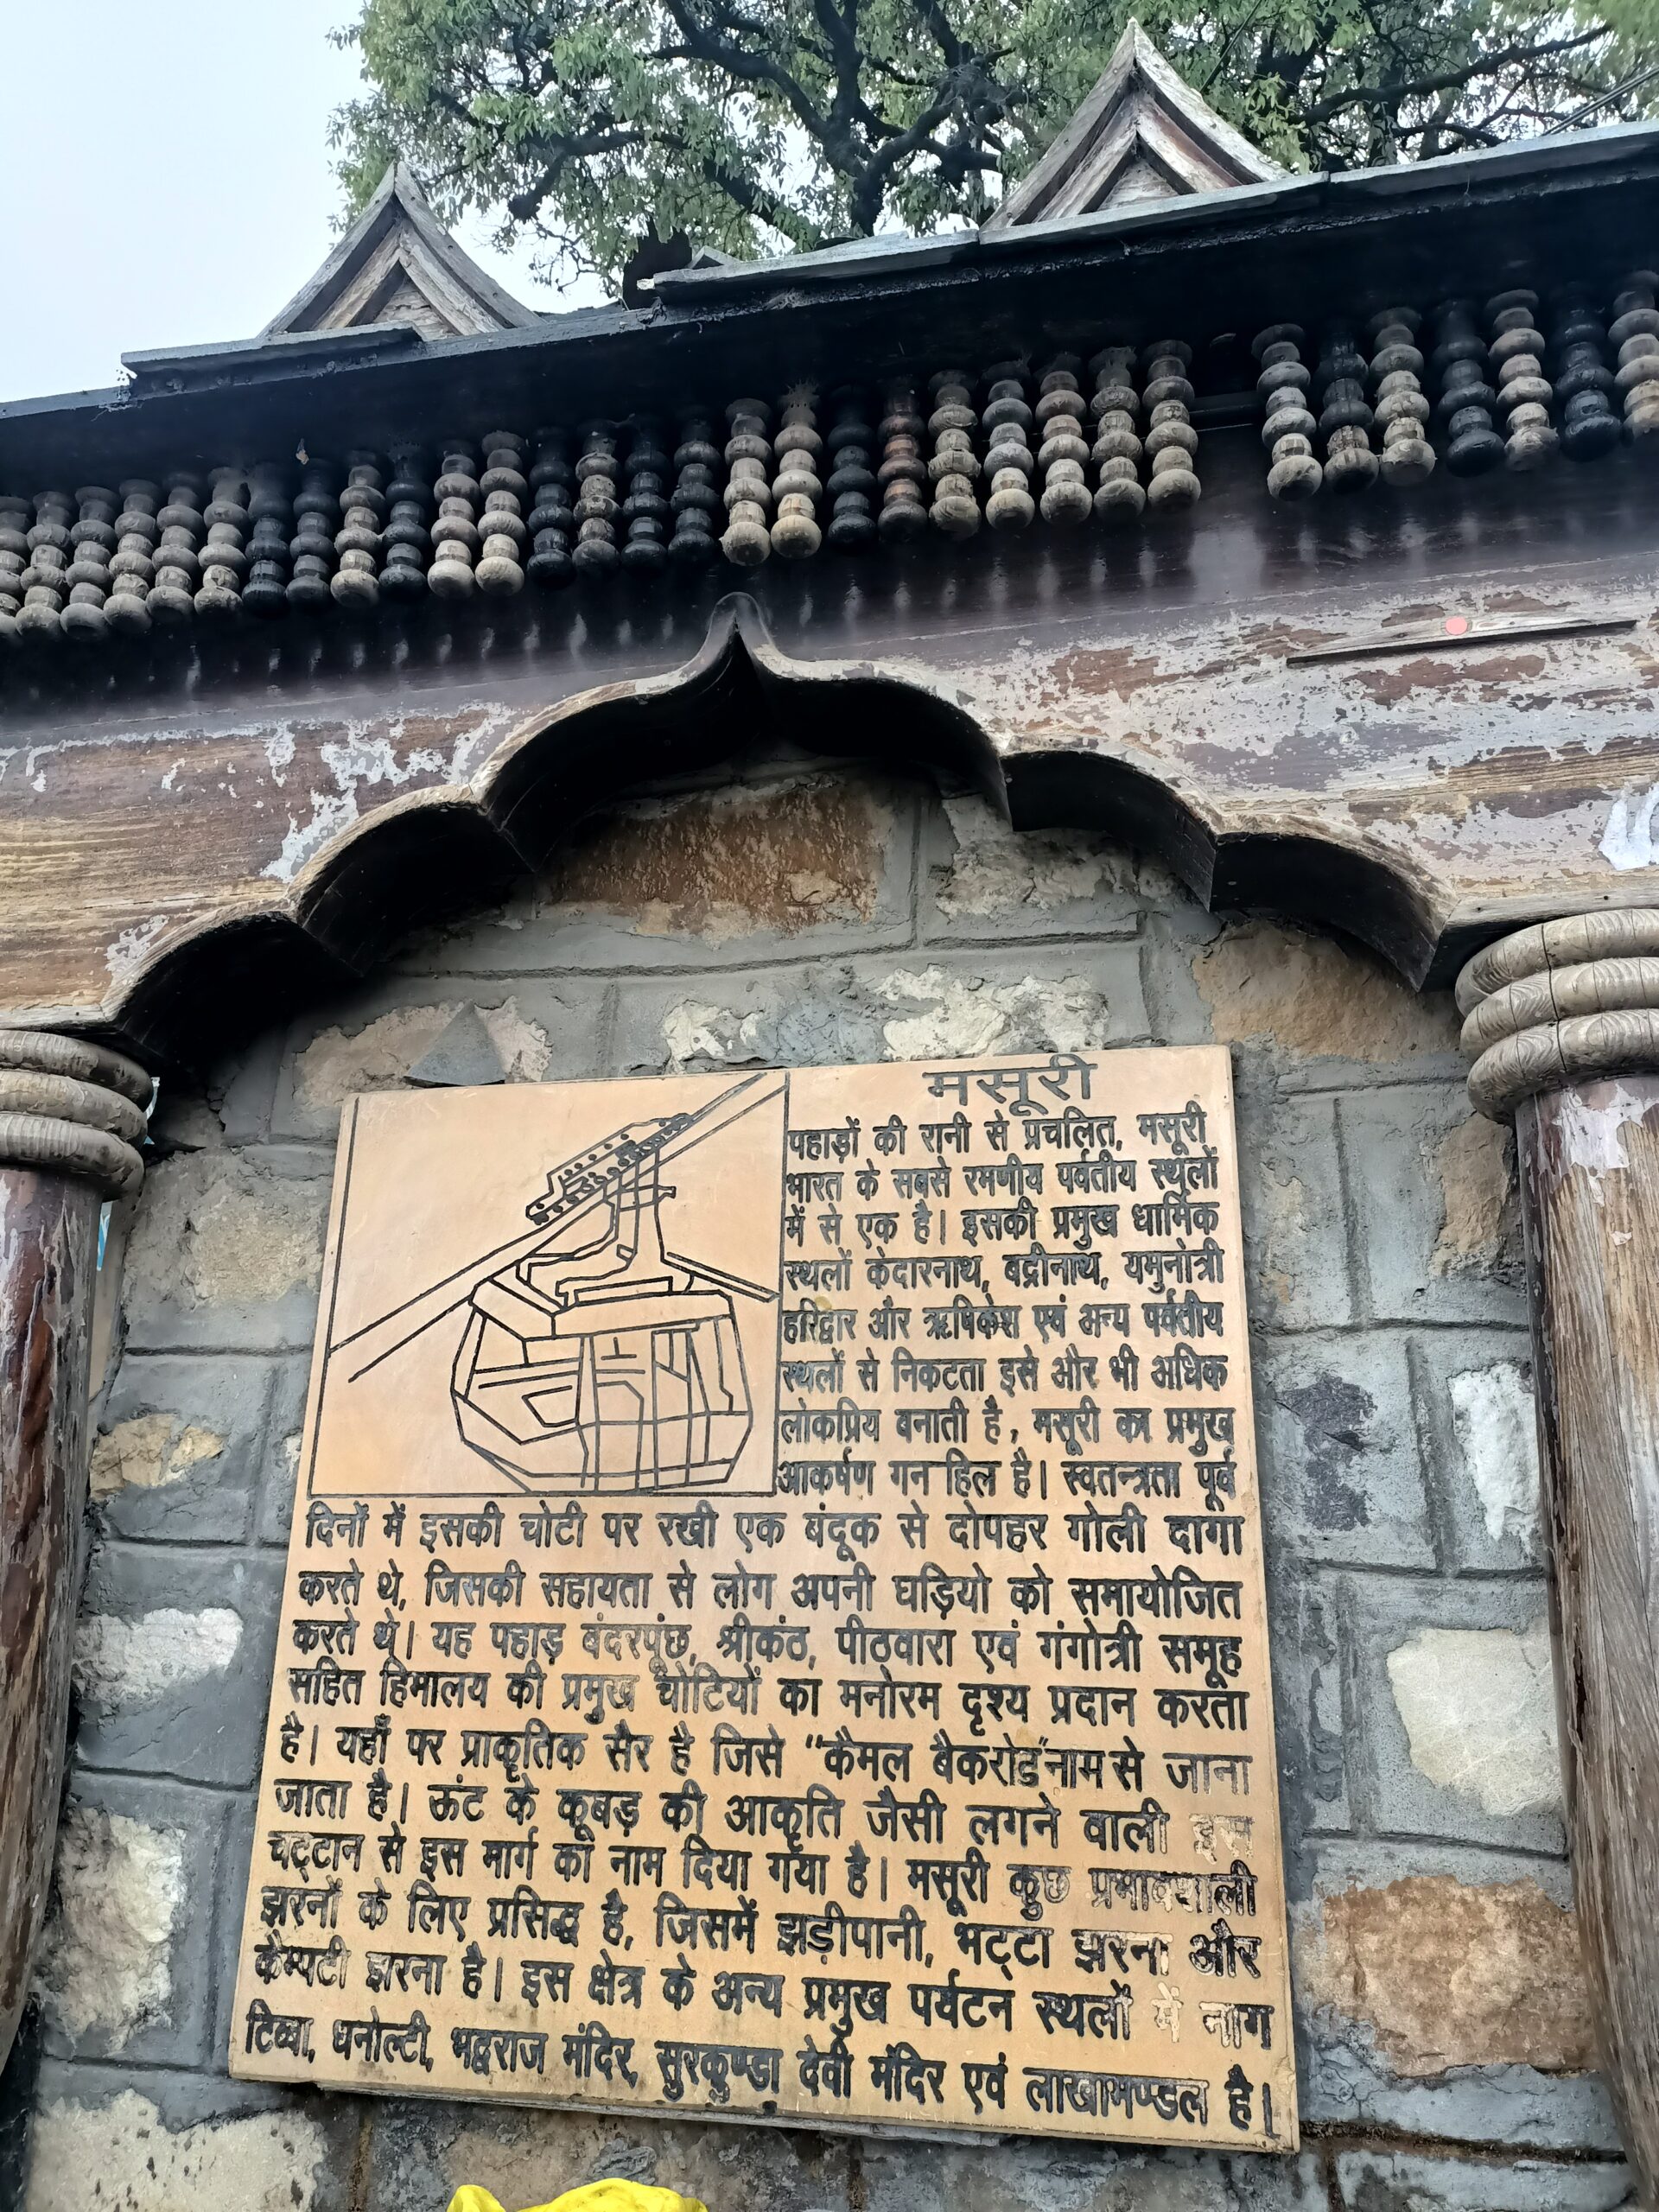 मसूरी
पहाड़ों की रानी से प्रचलित, मसूरी
भारत के सबसे रमणीय पर्वतीय स्थलों
में से एक है। इसकी प्रमुख धार्मिक
स्थलों केदारनाथ, बद्रीनाथ, यमुनोत्री
हरिद्वार और ऋषिकेश एवं अन्य पर्वतीय
स्थलों से निकटता इसे और भी अधिक
लोकप्रिय बनाती है, मसूरी का प्रमुख
आकर्षण गन हिल है। स्वतन्त्रता पूर्व
दिनों में इसकी चोटी पर रखी एक बंदूक से दोपहर गोली दागा
करते थे, जिसकी सहायता से लोग अपनी घड़ियो को समायोजित
करते थे। यह पहाड़ बंदरपूंछ, श्रीकंठ, पीठवारा एवं गंगोत्री समूह
सहित हिमालय की प्रमुख चोटियों का मनोरम दृश्य प्रदान करता
है। यहाँ पर प्राकृतिक सैर है जिसे "कैमल बैकरोड"नाम से जाना
जाता है। ऊंट के कूबड़ की आकृति जैसी लगने वाली इस
चट्टान से इस मार्ग का नाम दिया गया है। मसूरी कुछ प्रभावशाली
झरनों के लिए प्रसिद्ध है, जिसमें झड़ीपानी, भट्टा झरना और
कैम्पटी झरना है। इस क्षेत्र के अन्य प्रमुख पर्यटन स्थलों में नाग
टिब्बा, धनोल्टी, भद्वराज मंदिर, सुरकुण्डा देवी मंदिर एवं लाखामण्डल है।